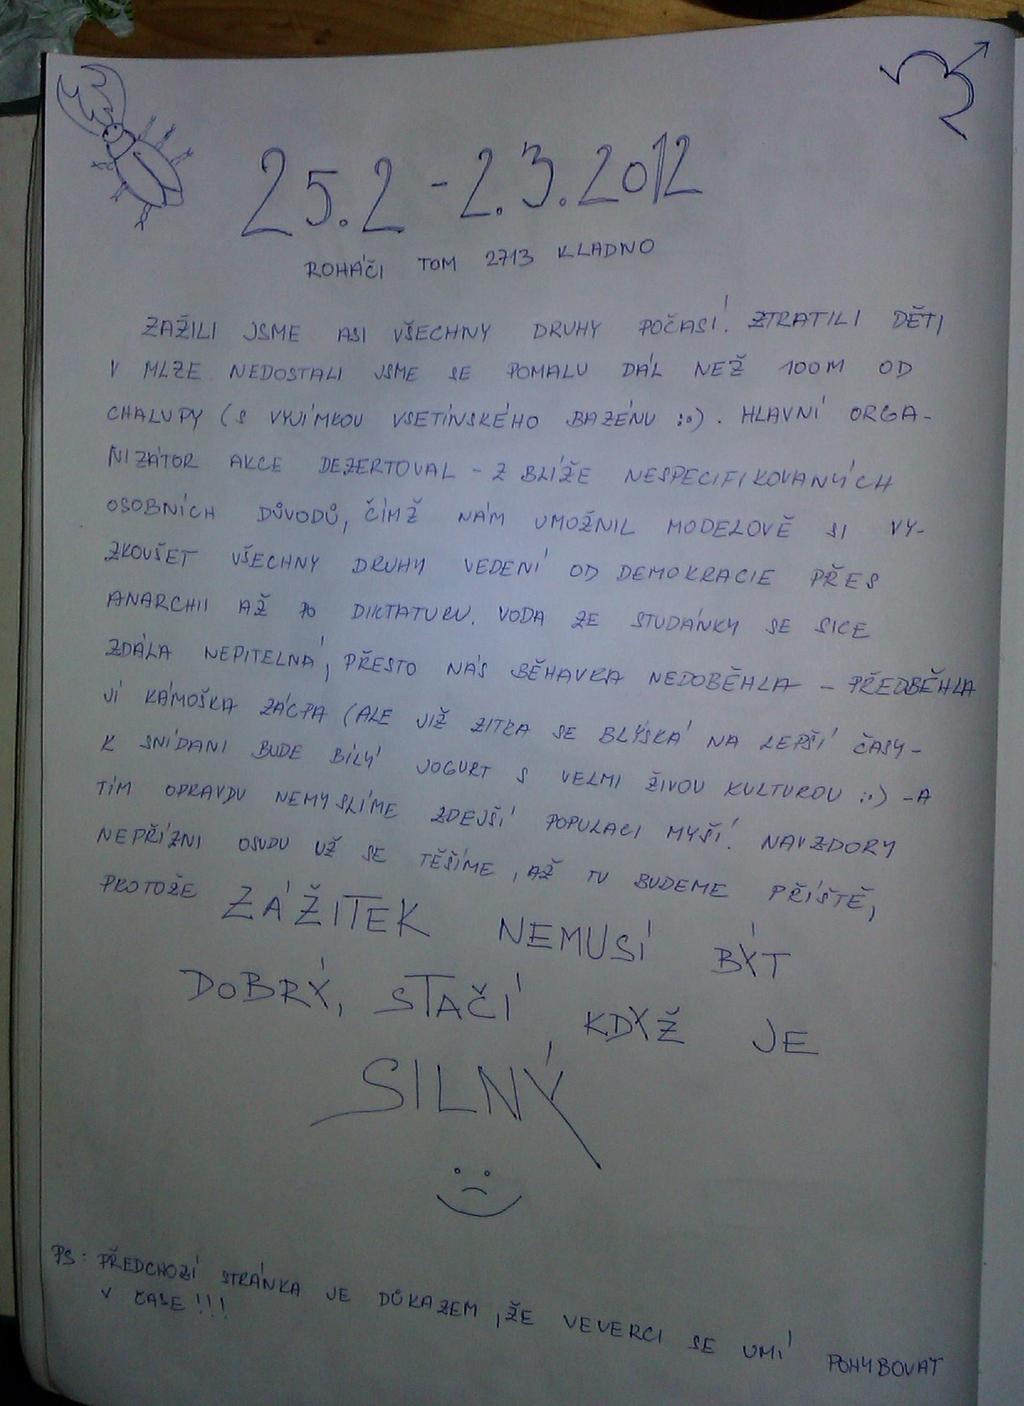 25.2 - 2.3.2012
ROHÁČI TOM 2713 KLADNO
ZAŽILI JSME ASI VŠECHNY DRUHY POČASÍ. ZTRATILI DĚTI
V MLZE. NEDOSTALI JSME SE POMALU DÁL NEŽ 100M OD
CHALUPY (S VYJÍMKOU VSETÍNSKÉHO BAZÉNU :o). HLAVNÍ ORGA-
NIZÁTOR AKCE DEZERTOVAL - Z BLÍŽE NESPECIFIKOVANÝCH
OSOBNÍCH DŮVODŮ, ČÍMŽ NÁM UMOŽNIL MODELOVĚ SI VY-
ZKOUŠET VŠECHNY DRUHY VEDENÍ OD DEMOKRACIE PŘES
ANARCHII AŽ PO DIKTATURU. VODA ZE STUDÁNKY SE SICE
ZDÁLA NEPITELNÁ, PŘESTO NÁS BĚHAVKA NEDOBĚHLA - PŘEDBĚHLA
JÍ KÁMOŠKA ZÁCPA (ALE JIŽ ZÍTRA SE BLÝSKÁ NA LEPŠÍ ČASY -
K SNÍDANI BUDE BÍLÝ JOGURT S VELMI ŽIVOU KULTUROU :o) - A
TÍM OPRAVDU NEMYSLÍME ZDEJŠÍ POPULACI MYŠÍ. NAVZDORY
NEPŘÍZNI OSUDU UŽ SE TĚŠÍME, AŽ TU BUDEME PŘÍŠTĚ,
PROTOŽE ZÁŽITEK NEMUSÍ BÝT
DOBRÝ, STAČÍ, KDYŽ JE
SILNÝ
PS: PŘEDCHOZÍ STRÁNKA JE DŮKAZEM, ŽE VEVERCI SE UMÍ POHYBOVAT
V ČASE!!!